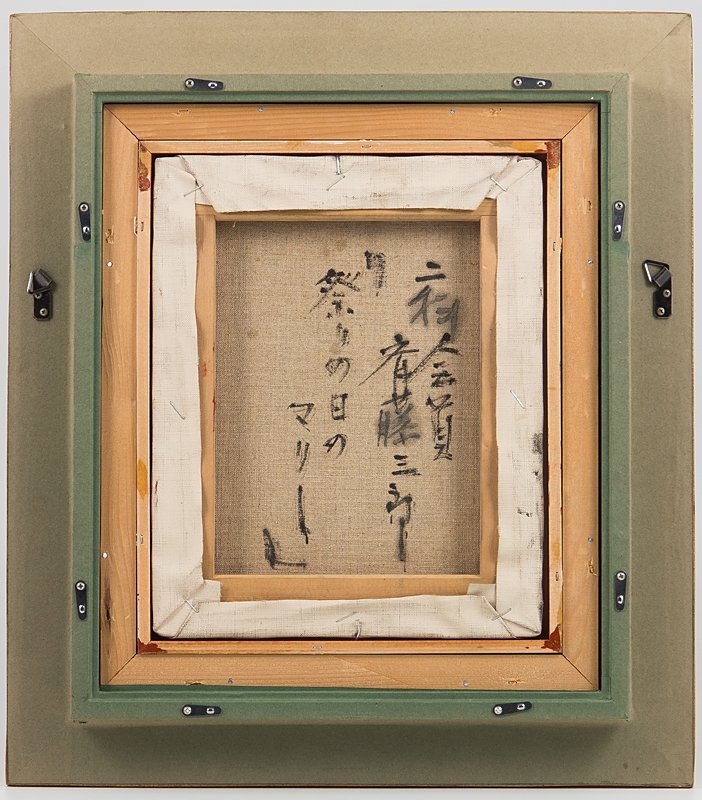 二科会員
斉藤三郎
「祭りの日の
マリー」